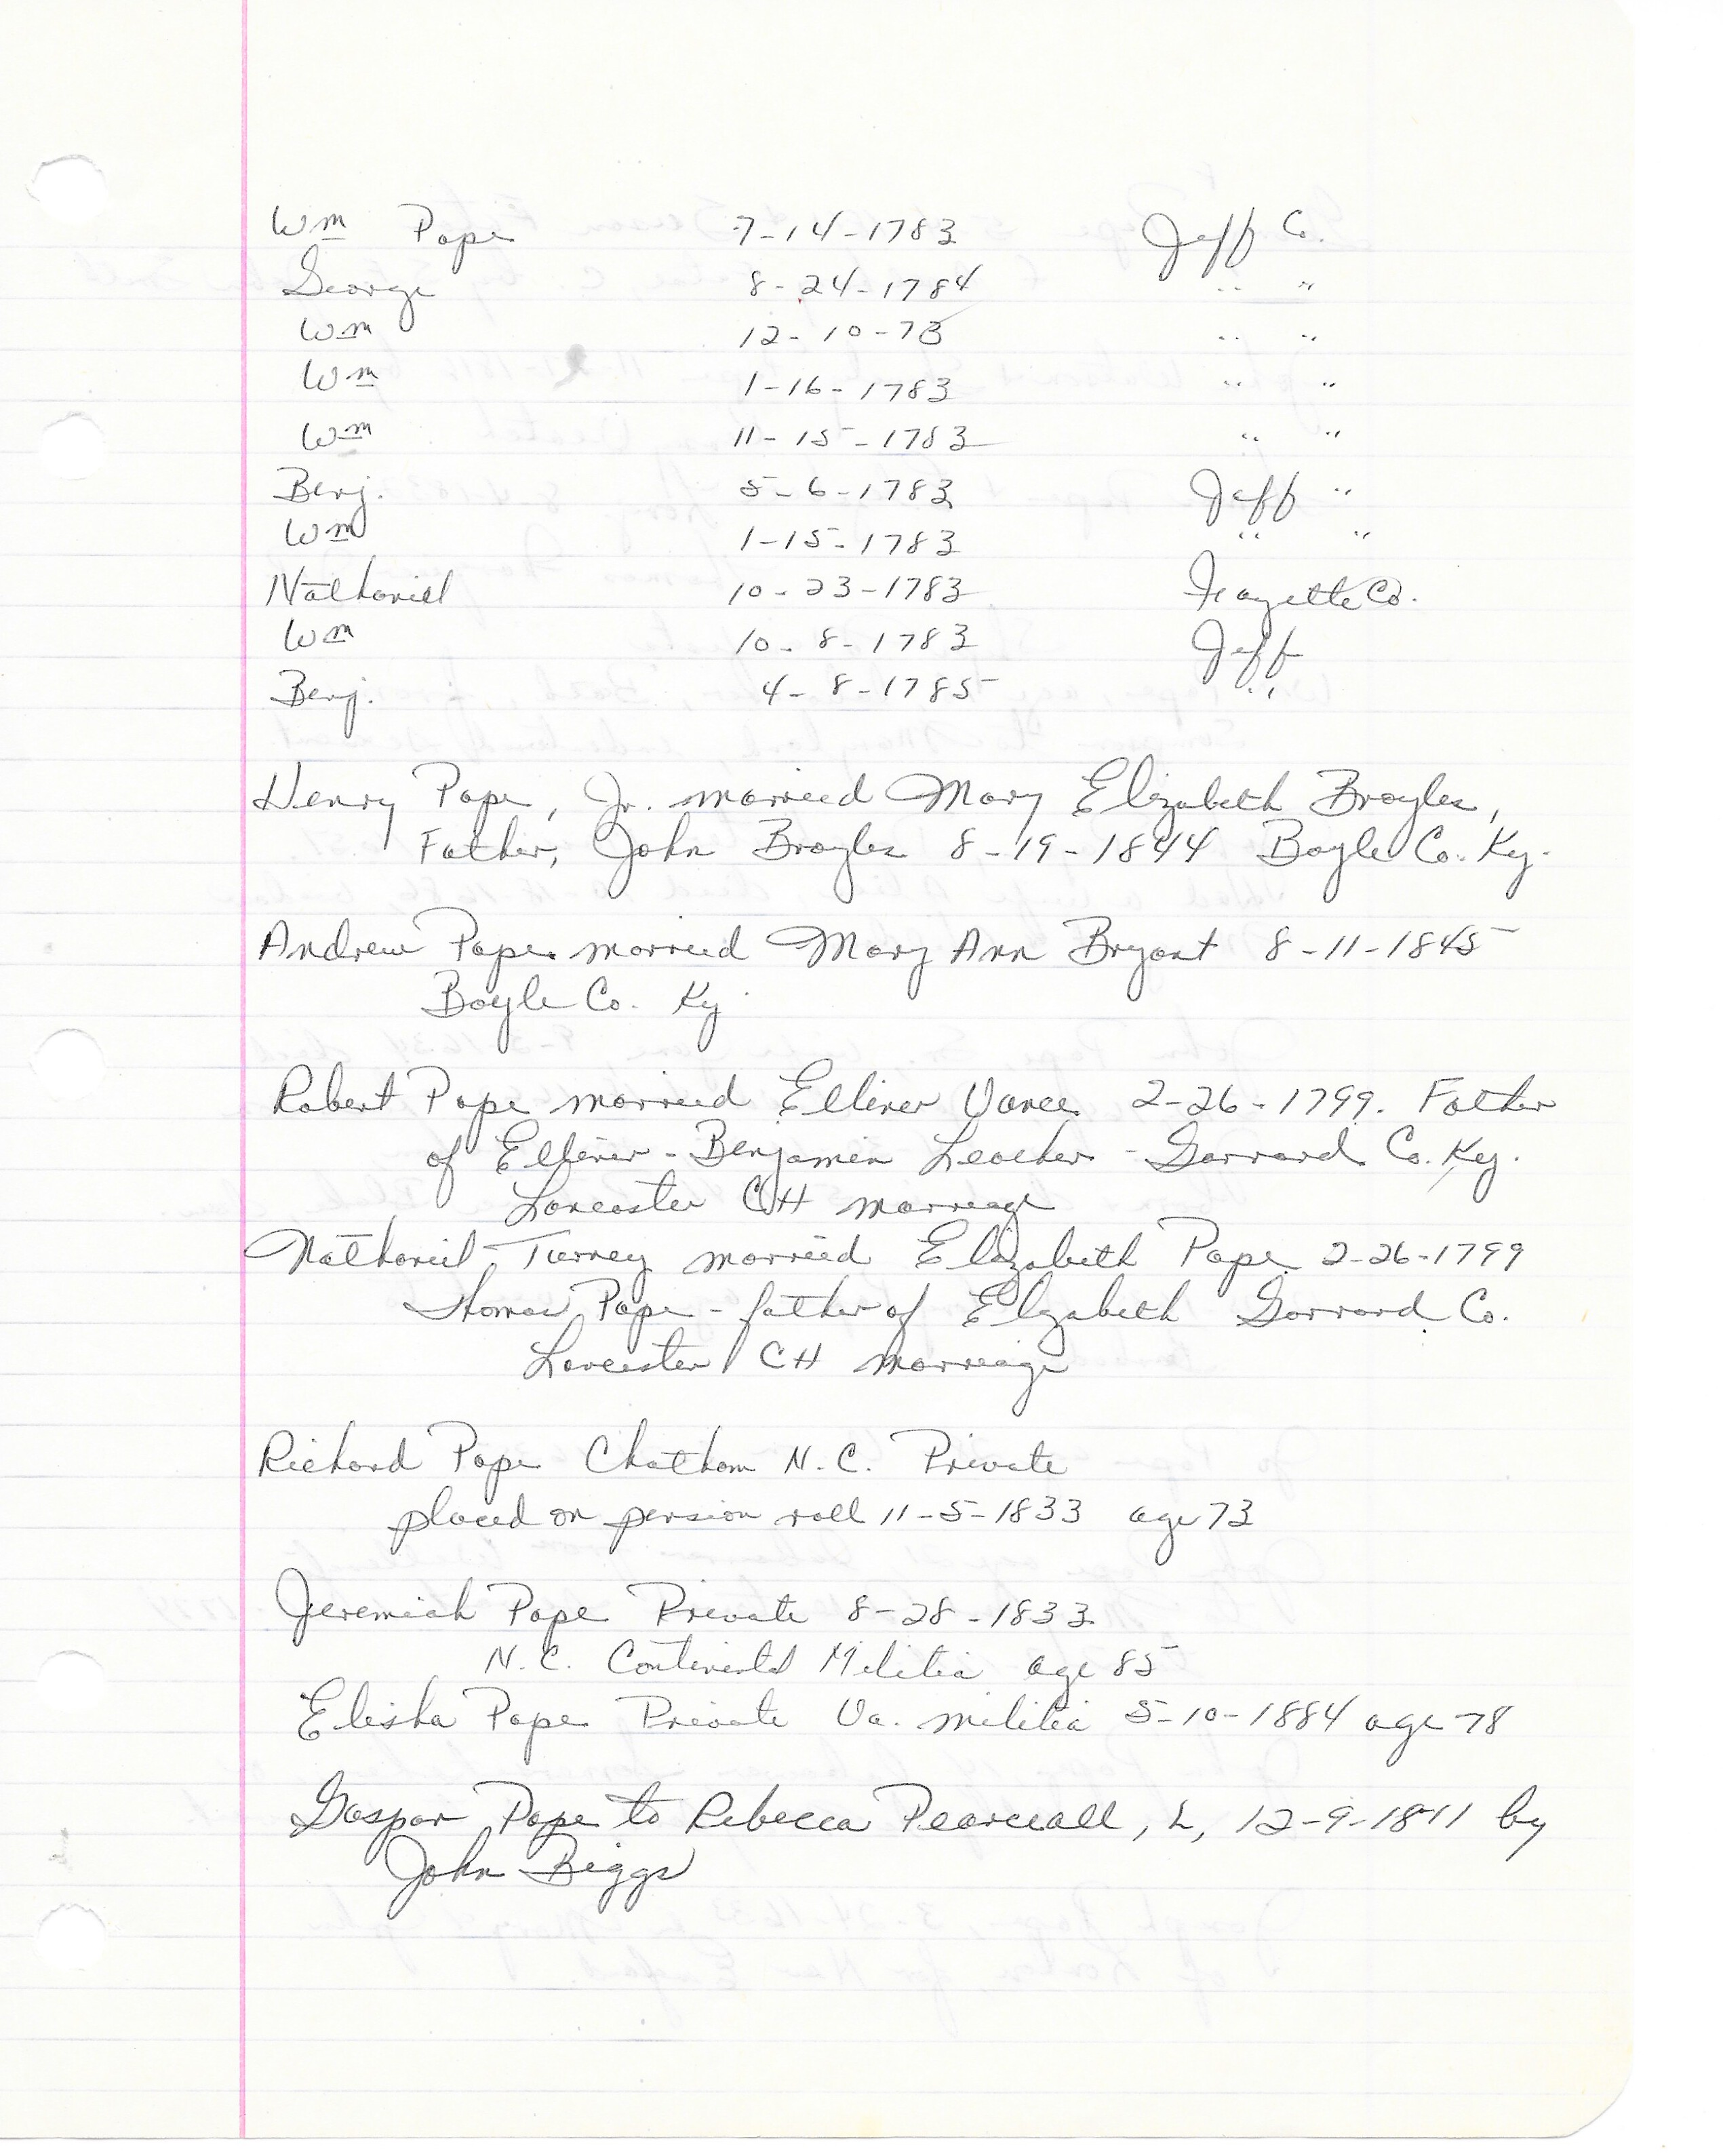 Wm Pope 7-14-1783 Jeff Co.
George 8-24-1784 " "
Wm 12-10-73 " "
Wm 1-16-1783 " "
Wm 11-15-1783 " "
Benj. 5-6-1783 Jeff "
Wm 1-15-1783 " "
Nathaniel 10-23-1783 Fayette Co.
Wm 10-8-1783 Jeff
Benj. 4-8-1785 "
Henry Pope, Jr. married Mary Elizabeth Broyles,
Father, John Broyles 8-19-1844 Boyle Co. Ky.
Andrew Pope married Mary Ann Bryant 8-11-1845
Boyle Co. Ky
Robert Pope married Elliner Vance 2-26-1799. Father
of Elliner - Benjamin Leacher - Garrard Co. Ky.
Lancaster CH marriage
Nathaniel Turney married Elizabeth Pope 2-26-1799
Thomas Pope - father of Elizabeth Garrard Co.
Lancaster CH marriage
Richard Pope Chatham N.C. Private
placed on pension roll 11-5-1833 age 73
Jeremiah Pope Private 8-28-1833
N.C. Continental Militia age 85
Elisha Pope Private Va. militia 5-10-1884 age 78
Gaspar Pope to Rebecca Pearceall, L, 12-9-1811 by
John Biggs